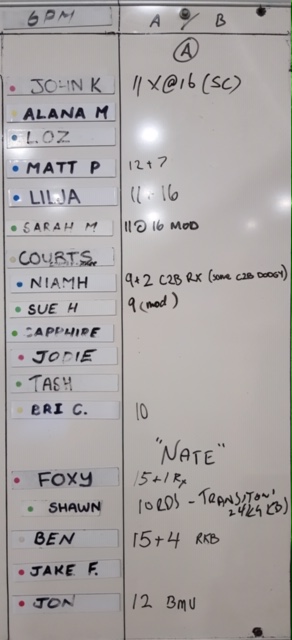 6PM A / B
A
JOHN K 11 X @ 16 (SC)
ALANA M
LOZ
MATT P 12+7
LILJA 11 + 16
SARAH M 11 @ 16 MOD
COURTS
NIAMH 9+2 C2B RX (some C2B DODGY)
SUE H 9 (mod)
SAPPHIRE
JODIE
TASH
BRI C. 10
"NATE"
FOXY 15+1 Rx
SHAWN 10 RDS - TRANSITON'
24KG KB)
BEN 15+4 RKB
JAKE F.
JON 12 BMU